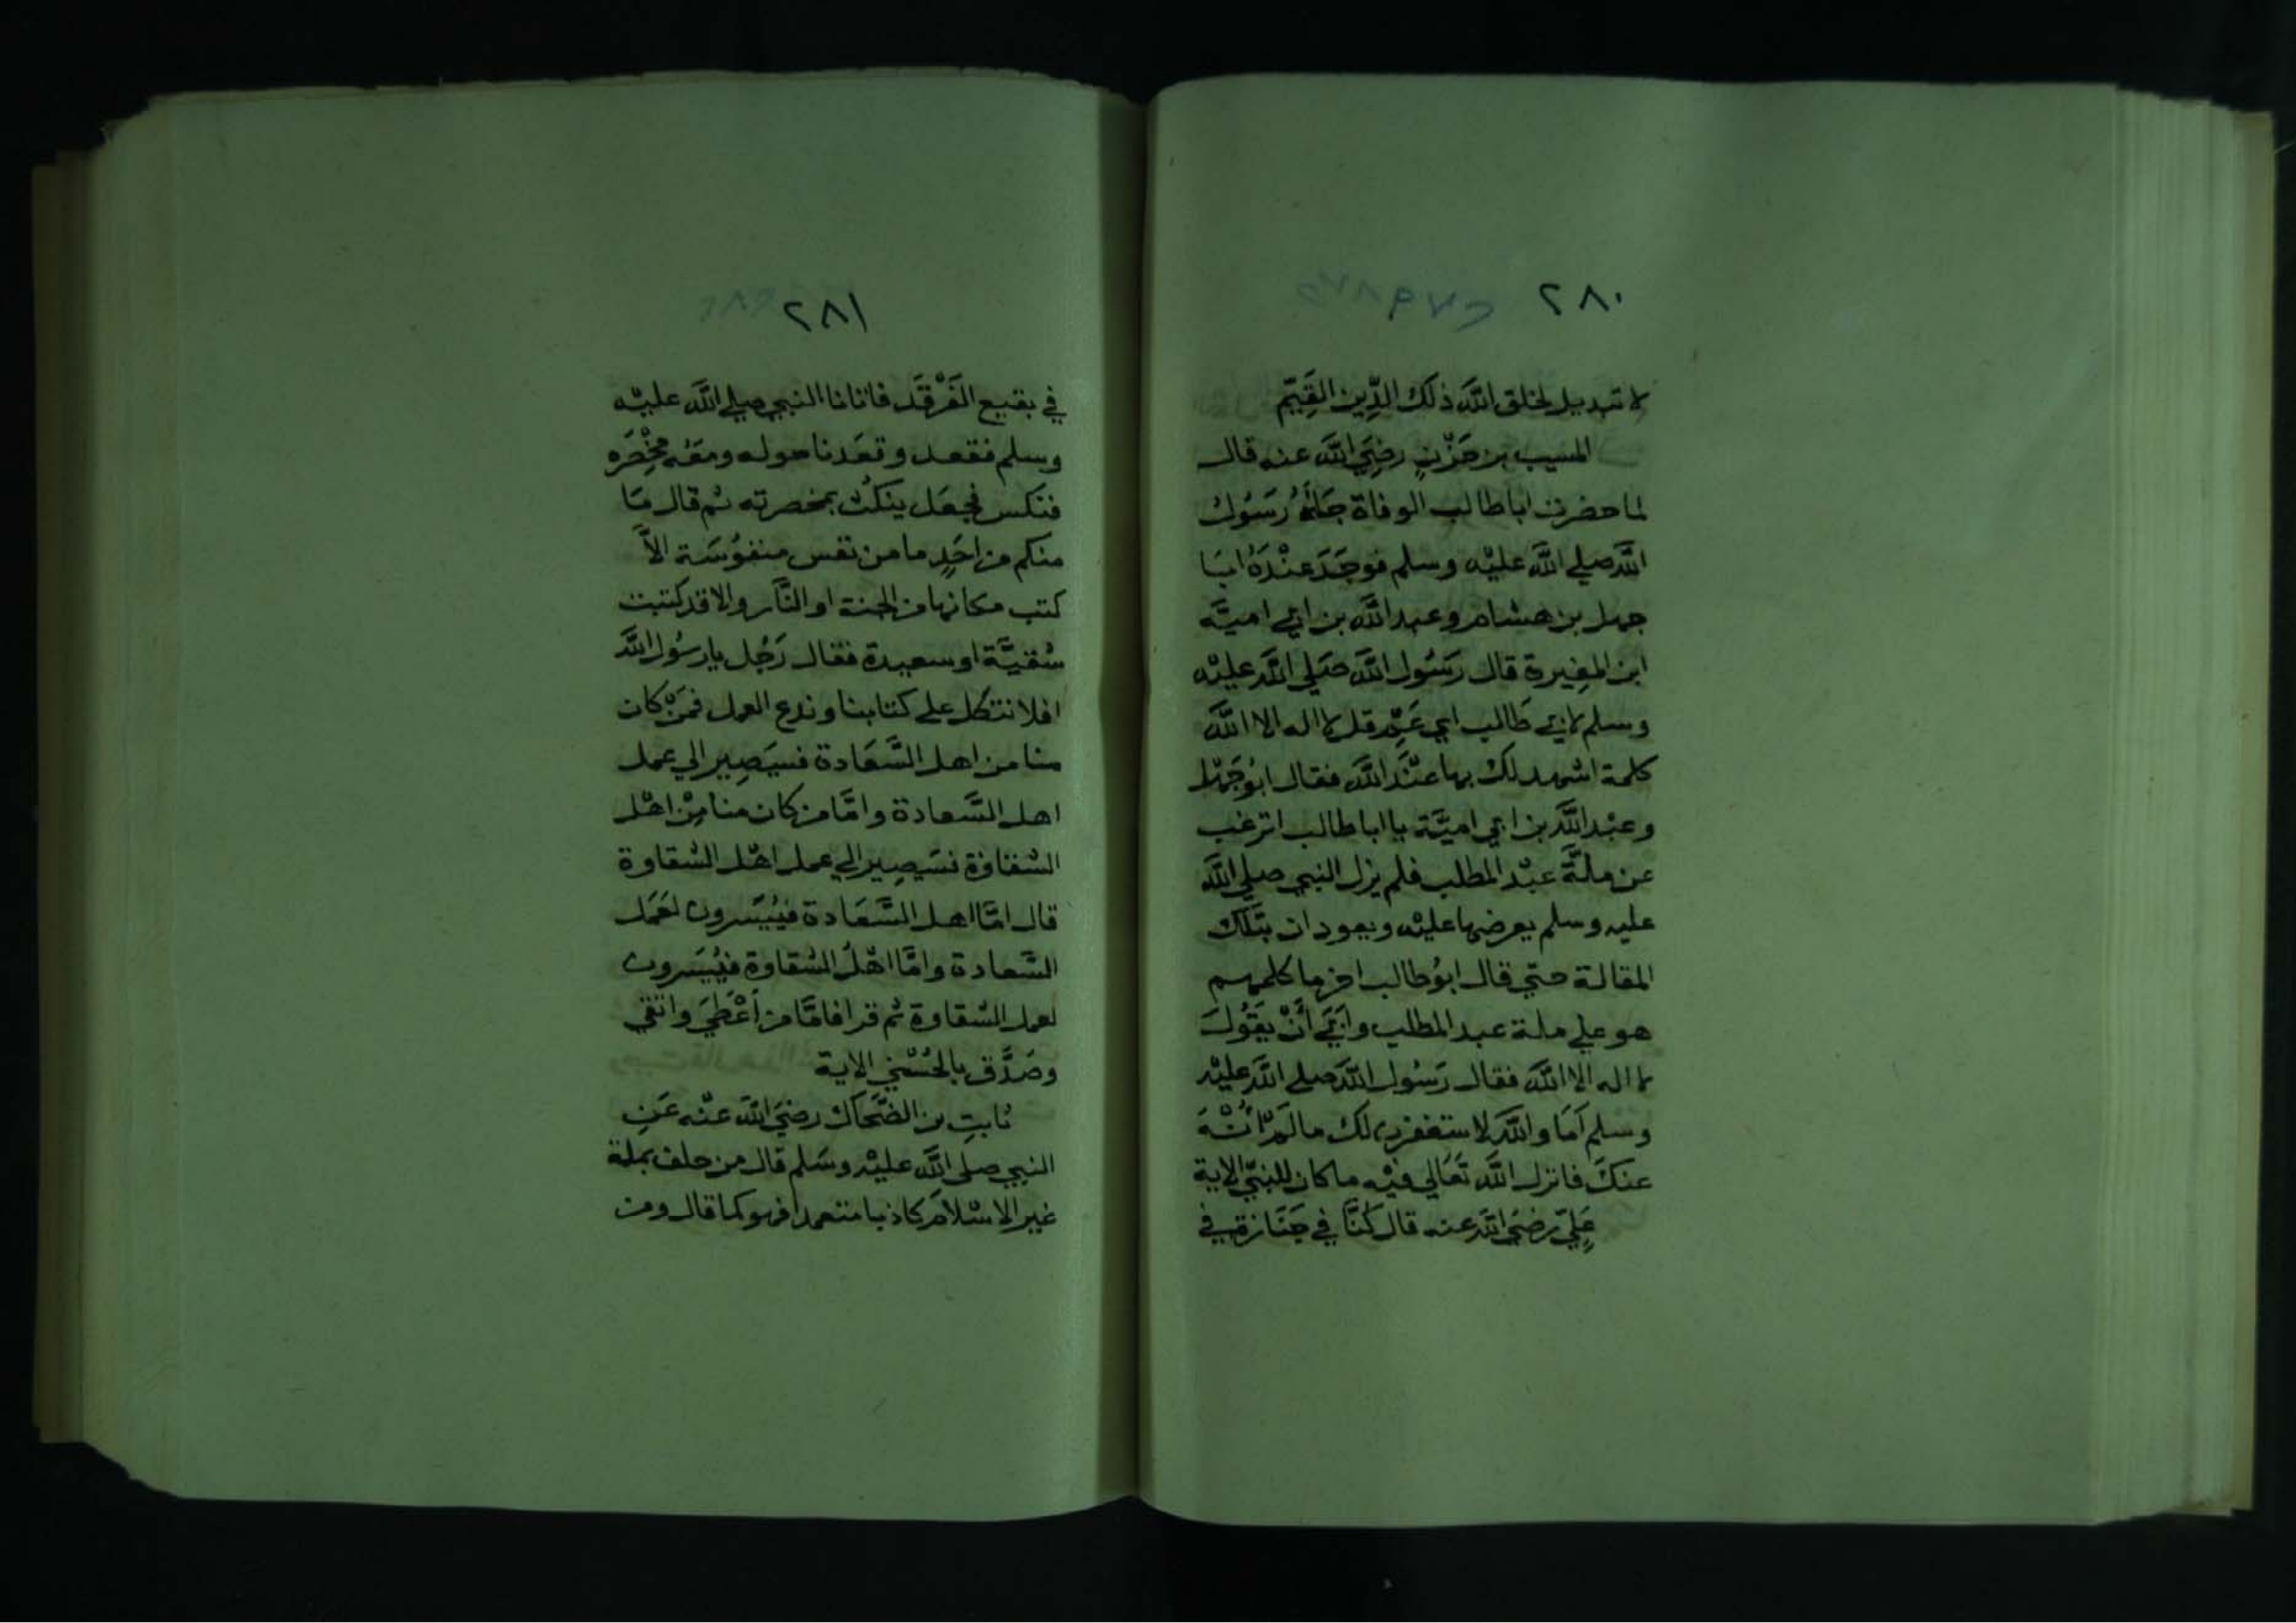 ٢٨٠
لا تبديل لخلق الله ذلك الدِّين القَيِّم
المسيب بن حَزْنٍ رضِيَ الله عنه قال
لما حضرت اباطالب الوفاة جَاءَهُ رَسُول
الله صلي الله عليْه وسلم فوجَدَ عنْدَهُ ابَا
جهل بن هشام وعبد الله بن ابي اميَّه
ابن المغِيرة قال رَسُول الله صَلي الله عليْه
وسلم لابي طَالب اي عَمِّ قل لا اله الا الله
كلمة اشهد لك بها عنْدَ الله فقال ابُوجَهْل
وعبْد الله بن ابي اميَّة يا اباطالب اترغب
عن ملَّة عبْد المطلب فلم يزل النبي صلي الله
عليه وسلم يعرضها عليْه ويعود ان بتلك
المقالة حتّي قال ابُوطالب اخر ما كلمهم
هو علي ملة عبد المطلب وابَي أَنْ يقُولَ
لا اله الا الله فقال رَسُول الله صلي الله عليْه
وسلم أمَا والله لاستغفرن لك مالَمْ أُنْهَ
عنكَ فانزل الله تَعَالي فيْه ماكان للنبيّ الاية
عَلِيّ رضيَ الله عنه قال كنَّا في جَنَازة في
٢٨١
في بقيع الغَرْقَد فاتانا النبي صلي الله عليْه
وسلم فقعد وقعَدنا حوله ومعَه مخْصَره
فنكس فجعَل ينكُت بمخصرته ثم قال مَا
منكم من احَدٍ ما من نفس منفوسَة الاَّ
كتب مكانها من الجنة او النَّار والاقد كتبت
شقيَّة او سعيدة فقال رَجُل يارسُول الله
افلا نتكل علي كتابنا وندع العمل فمَنْ كان
منا من اهل السَّعَادة فسيَصِير الي عمل
اهل السَّعادة وامَّا من كان منا مِنْ اهْل
الشقاوَة فسَيصِير الي عمل اهْل الشقاوة
قال امَّا اهل السَّعَادة فيُيَسَّرون لعَمَل
السَّعادة وامَّا اهْلُ الشقاوة فيُيَسَّرون
لعمل الشقاوة ثم قرا فامَّا من أعْطَي واتقي
وصَدَّق بالحُسْني الاية
ثابتِ بن الضَّحاك رضيَ الله عنْه عَنِ
النبي صلي الله عليْه وسَلم قال من حلف بملة
غير الاسْلام كاذبا متعمدا فهو كما قال ومن